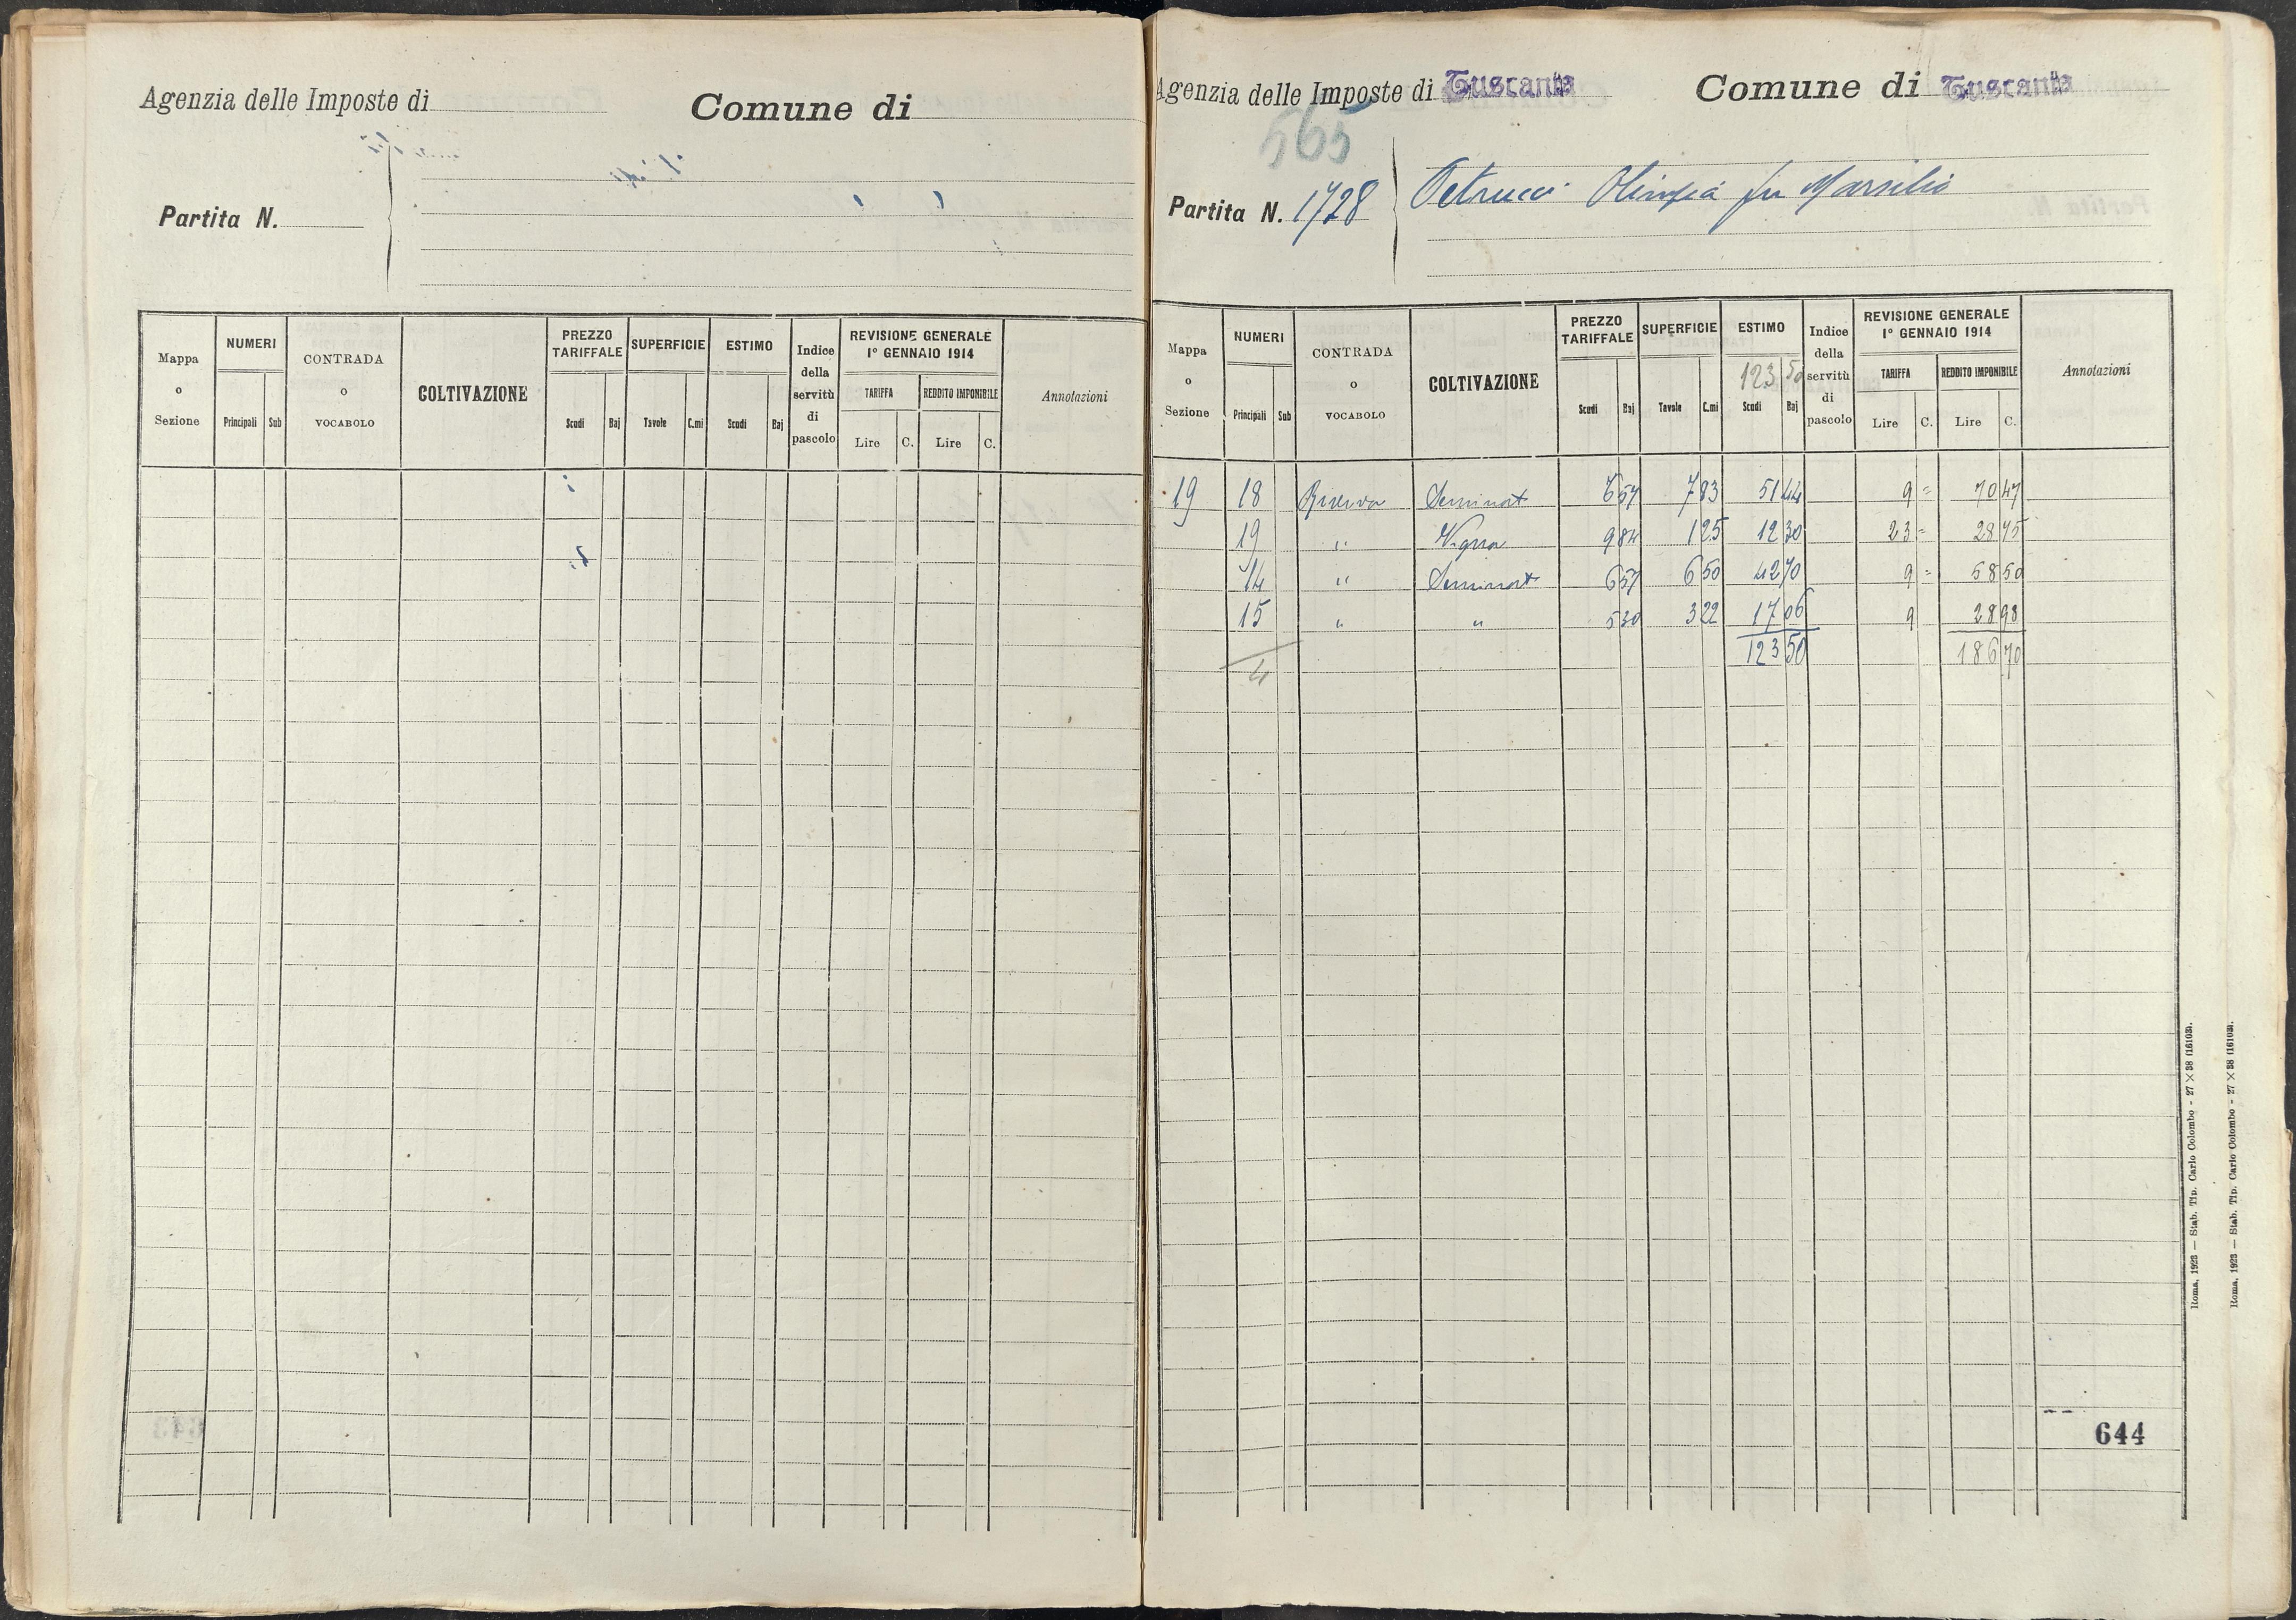 Agenzia delle Imposte di
Comune di
Partita N.
Mappa o Sezione
NUMERI
Principali Sub
CONTRADA o VOCABOLO
COLTIVAZIONE
PREZZO TARIFFALE
Scudi Baj
SUPERFICIE
Tavole C.mi
ESTIMO
Scudi Baj
Indice della servitù di pascolo
REVISIONE GENERALE
1º GENNAIO 1914
TARIFFA REDDITO IMPONIBILE
Lire C. Lire C.
Annotazioni
Agenzia delle Imposte di Tuscania
Comune di Tuscania
565
Partita N. 1728
Petrucci Olimpia fu Marsilio
Mappa o Sezione
NUMERI
Principali Sub
CONTRADA o VOCABOLO
COLTIVAZIONE
PREZZO TARIFFALE
Scudi Baj
SUPERFICIE
Tavole C.mi
ESTIMO
123 50
Scudi Baj
Indice della servitù di pascolo
REVISIONE GENERALE
1º GENNAIO 1914
TARIFFA REDDITO IMPONIBILE
Lire C. Lire C.
Annotazioni
19 18 Riserva Seminat 6 57 7 83 51 44 9 = 70 47
19 " Vigna 9 84 1 25 12 30 23 = 28 75
14 " Seminat 6 57 6 50 42 70 9 = 58 50
15 " " 5 30 3 22 17 06 9 28 98
4 123 50 186 70
644
Roma, 1923 — Stab. Tip. Carlo Colombo - 27 × 38 (16103).
Roma, 1923 — Stab. Tip. Carlo Colombo - 27 × 38 (16103).